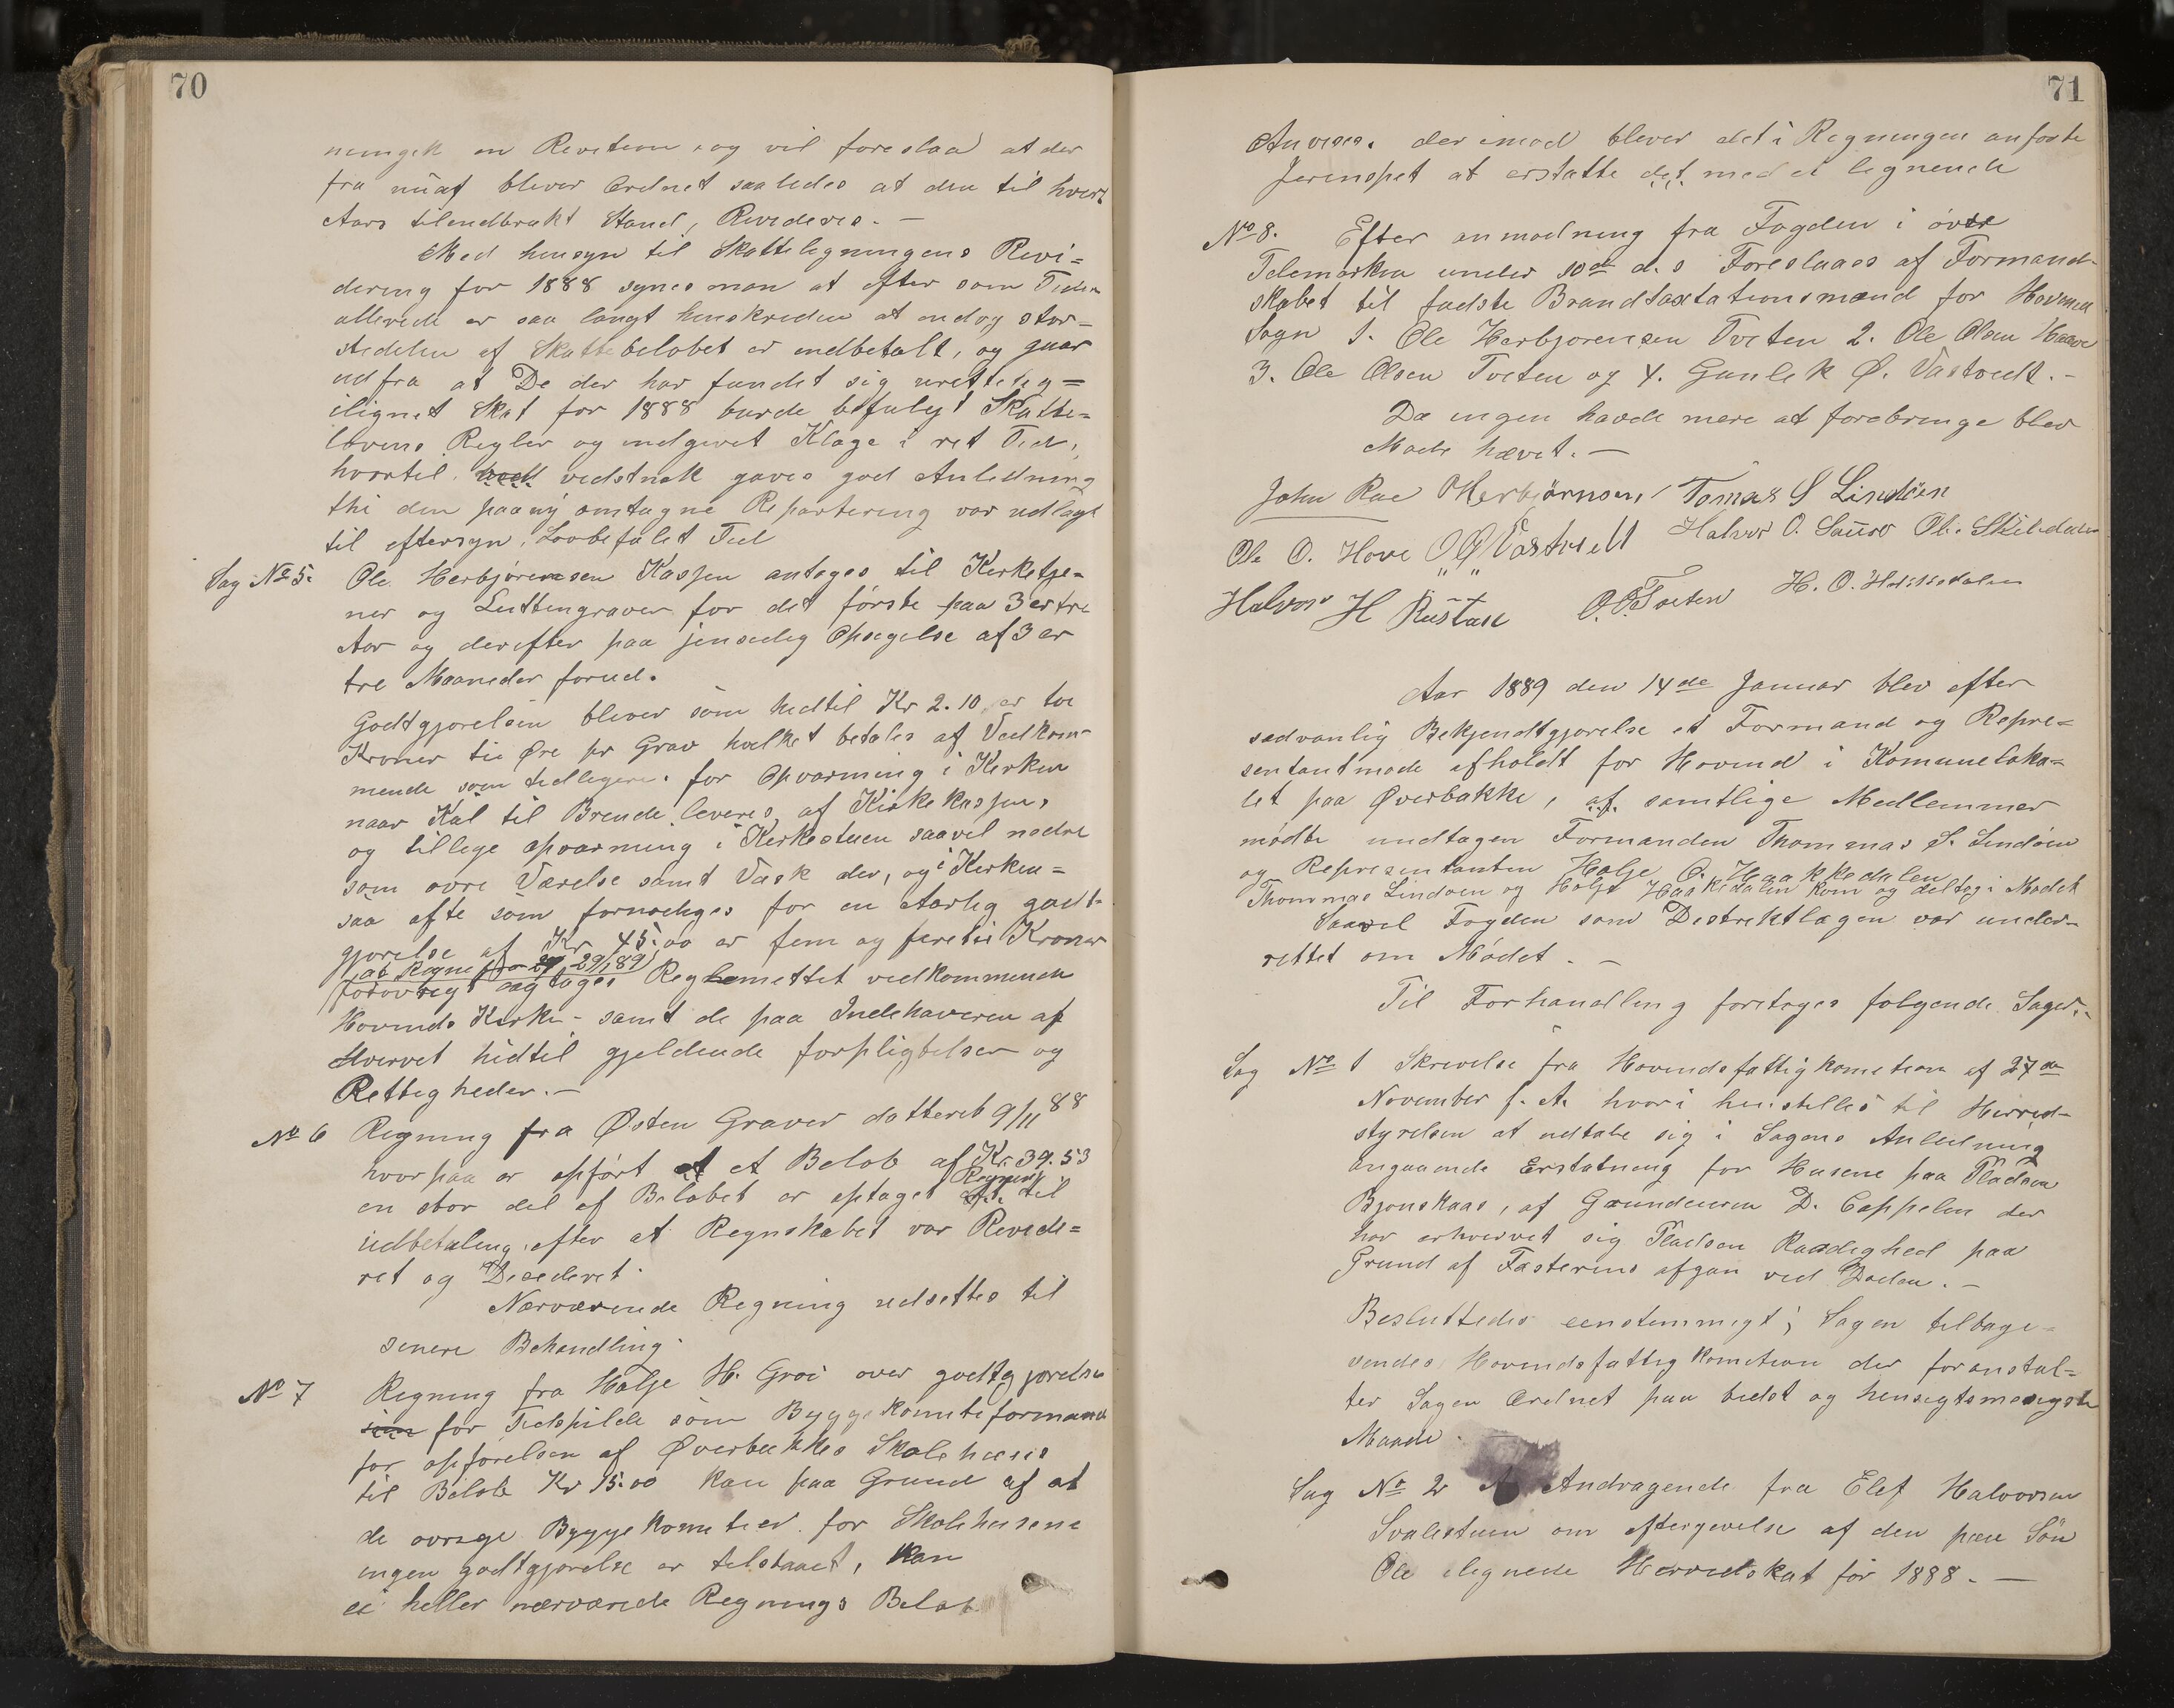 70
en Revition, og vil foreslaa at der
fra nu af bliver Ordnet saaledes at den til hvert
Aars tilendbrakt Stand, Revideres. —
Med hensyn til Skatteligningens Revi=
dering for 1888 synes man at efter som Tiden
allerede er saa langt henskreden at endog stør=
stedelen af Skattebeløbet er indbetalt, og gaar
ud fra at De der har fundet sig urettelig=
ilignet Skat for 1888 burde befulgt Skatte=
lovens Regler og indgivet Klage i ret Tid,
hvortil vedstnok gaves god Anledning
thi den paany omtagne Repartering var udlagt
til eftersyn, Lovbefalet Tid
Sag No 5. Ole Herbjørensen Kassen antages til Kerketje=
ner og for det første paa 3 er tre
Aar og derefter paa jensedig Opsegelse af 3 er
tre Maaneder forud.
Godtgjørelsen bliver som hedtil Kr 2.10 er to
Kroner ti Øre pr Grav hvelket betales af Vedkom-
mende som tidligere. for Opvarming i Kerken
naar Kul til Brende leveres, af Kirkekassen,
og tillige opvarming i Kerkestuen saavel nedre
som øvre Værelse samt Vask der, og i Kerken=
saa ofte som fornødiges for en Aarlig godt-
gjørelse af Kr 45.00 er fem og føreti Kroner
(at Regne fra 29/1 89)
forøvrigt iagtages Reglemettet vedkommende
Hovinds Kerke - samt de paa Indehaveren af
Hvervet hidtil gjeldende forpligtelser og
Rettigheder. —
No 6 Regning fra Østen Graver datteret 9/11 88
hvorpaa er opført et Beløb af Kr. 39.53
en stor del af Beløbet er optaget Regning til
udbetaling, efter at Regnskabet var Revide=
ret og Decederet.
Nærværende Regning udsettes til
senere Behandling.
No 7 Regning fra Hølje H. Groi over godtgjørelse
som for Tidspilde som Byggekomiteformand
for opførelsen af Øverbøkkes Skolehuus
til Beløb Kr 15.00 kan paa Grund af at
de øvrege Byggekometier for Skolehusene
ingen godtgjørelse er tilstaaet, kan
ei heller nærværende Regnings Beløb
71
Anvises. derimod bliver det i Regningen anførte
at erstatte det med et lignende
No 8. Efter anmodning fra Fogden i øvre
Telemarken under 10de d. s Foreslaaes af Formand-
skabet til fadste Brandtaxtationsmænd for Hovind
Sogn 1. Ole Herbjørensen Tveten 2. Ole Olsen Haave
3. Ole Olsen Tveten og 4. Gunlek Ø. Vastveit. —
Da ingen havde mere at forebringe blev
Møde hævet. —
John Rae O Herbjørnsen Tomas S Lindöen
Ole O. Hove O Ø Vastveit Halvor O. Sauro Ole Skeiedalen
Halvor H Rustad O. O. Tveten H. O. Haakkedalen
Aar 1889 den 14de Januar blev efter
sædvanlig Bekjendtgjørelse et Formand og Repre=
sentantmøde afholdt for Hovind i Komuneloka=
let paa Øverbøkke, af samtlige Medlemmer
mødte undtagen Formanden Thommas S. Lindøen
og Representanten Hølje O. Haakkedalen
Thommas Lindøen og Hølje Haakkedalen kom og deltog i Mødet
Saavel Fogden som Destriktlægen var under-
rettet om Mödet. —
Til Forhandling foretoges følgende Sager. -
Sag No 1 Skrivelse fra Hovindsfattigkometion af 27de
November f. A. hvori henstilles til Herred-
styrelsen at udtale sig i Sagens Anledning
angaaende Erstatning for Husene paa Pladsen
Bjønskaas, af Grundeieren D. Cappelen der
har erhvervet sig Pladsen Raadighed paa
Grund af Fæsterens afgan ved Døden. —
Besluttedes eenstemmigt; Sagen tilbage-
sendes, Hovindsfattigkometion der foranstal=
ter Sagen Ordnet paa bedst og hensigtsmessigste
Maade. —
Sag No 2 Andragende fra Elef Halvorsen
Svalestuen om eftergivelse af den paa Søn
Ole elignede Herredskat for 1888. —